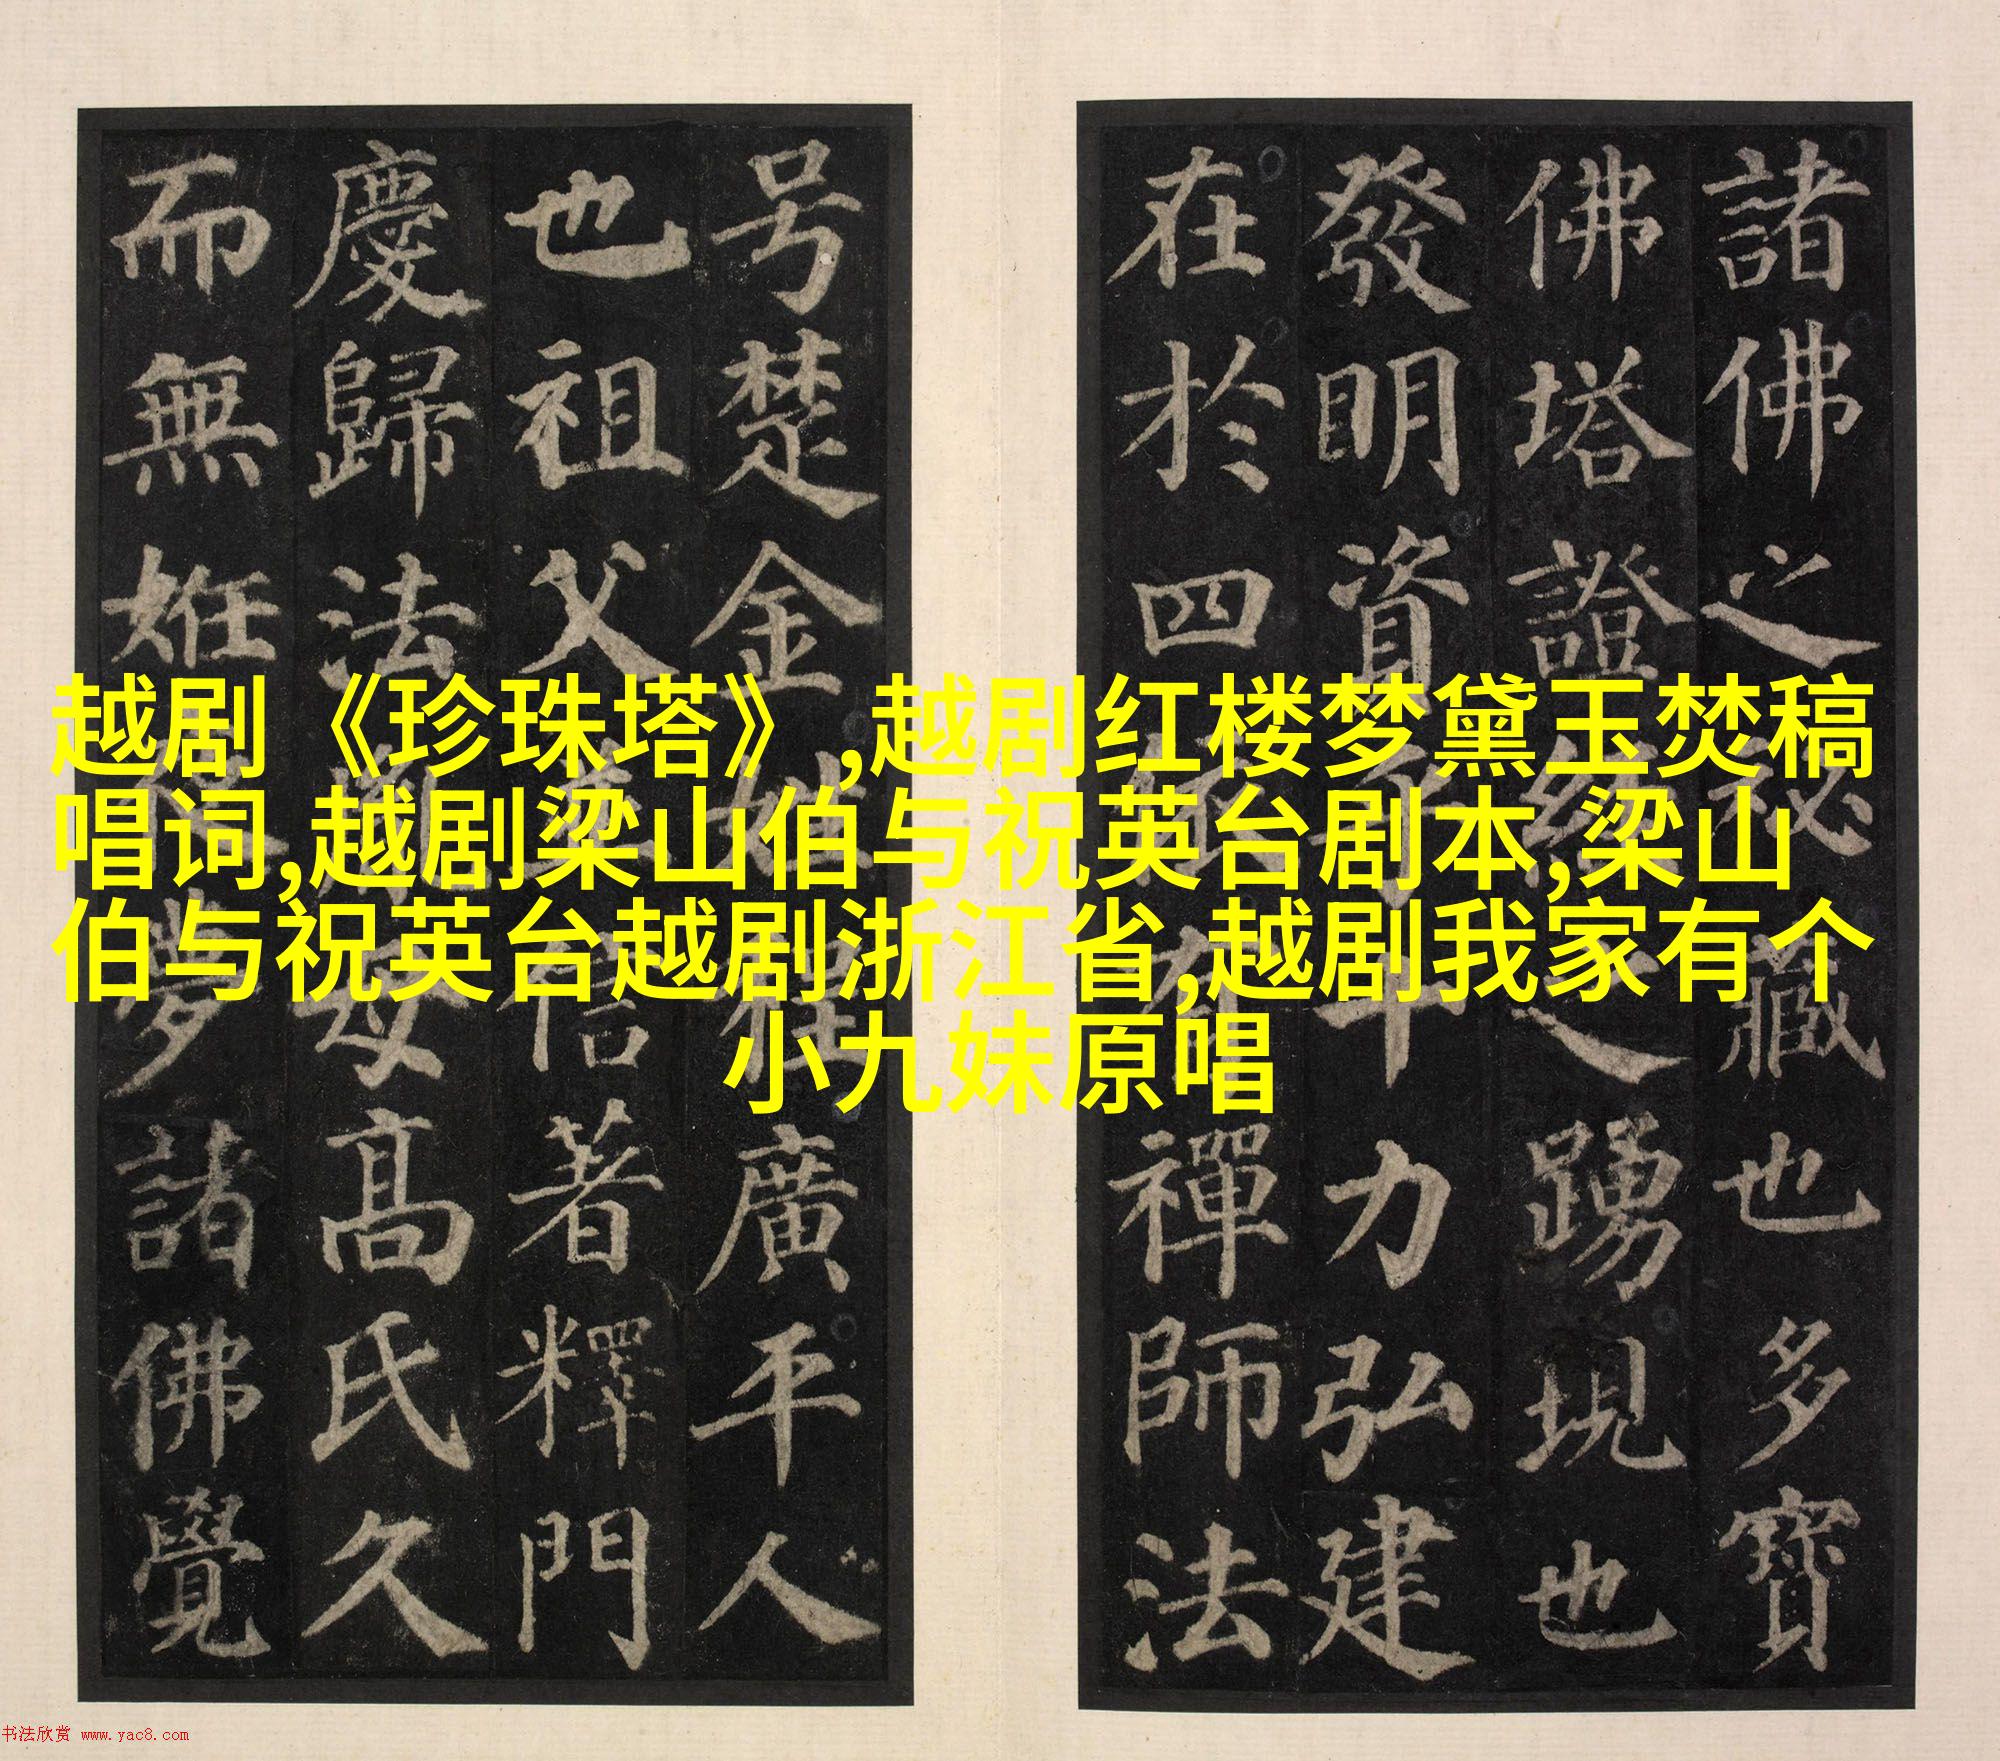 越剧《珍珠塔》,越剧红楼梦黛玉焚稿
唱词,越剧梁山伯与祝英台剧本,梁山
伯与祝英台越剧浙江省,越剧我家有个
小九妹原唱
諸佛之祕藏也多寶
佛塔證經之踴現也
發明資十力弘建
在於四禪師法
号楚金姓程廣平人
也祖父信著釋門
慶歸法母高氏久
而無姙夢諸佛覺
书法欣赏 www.yac8.com